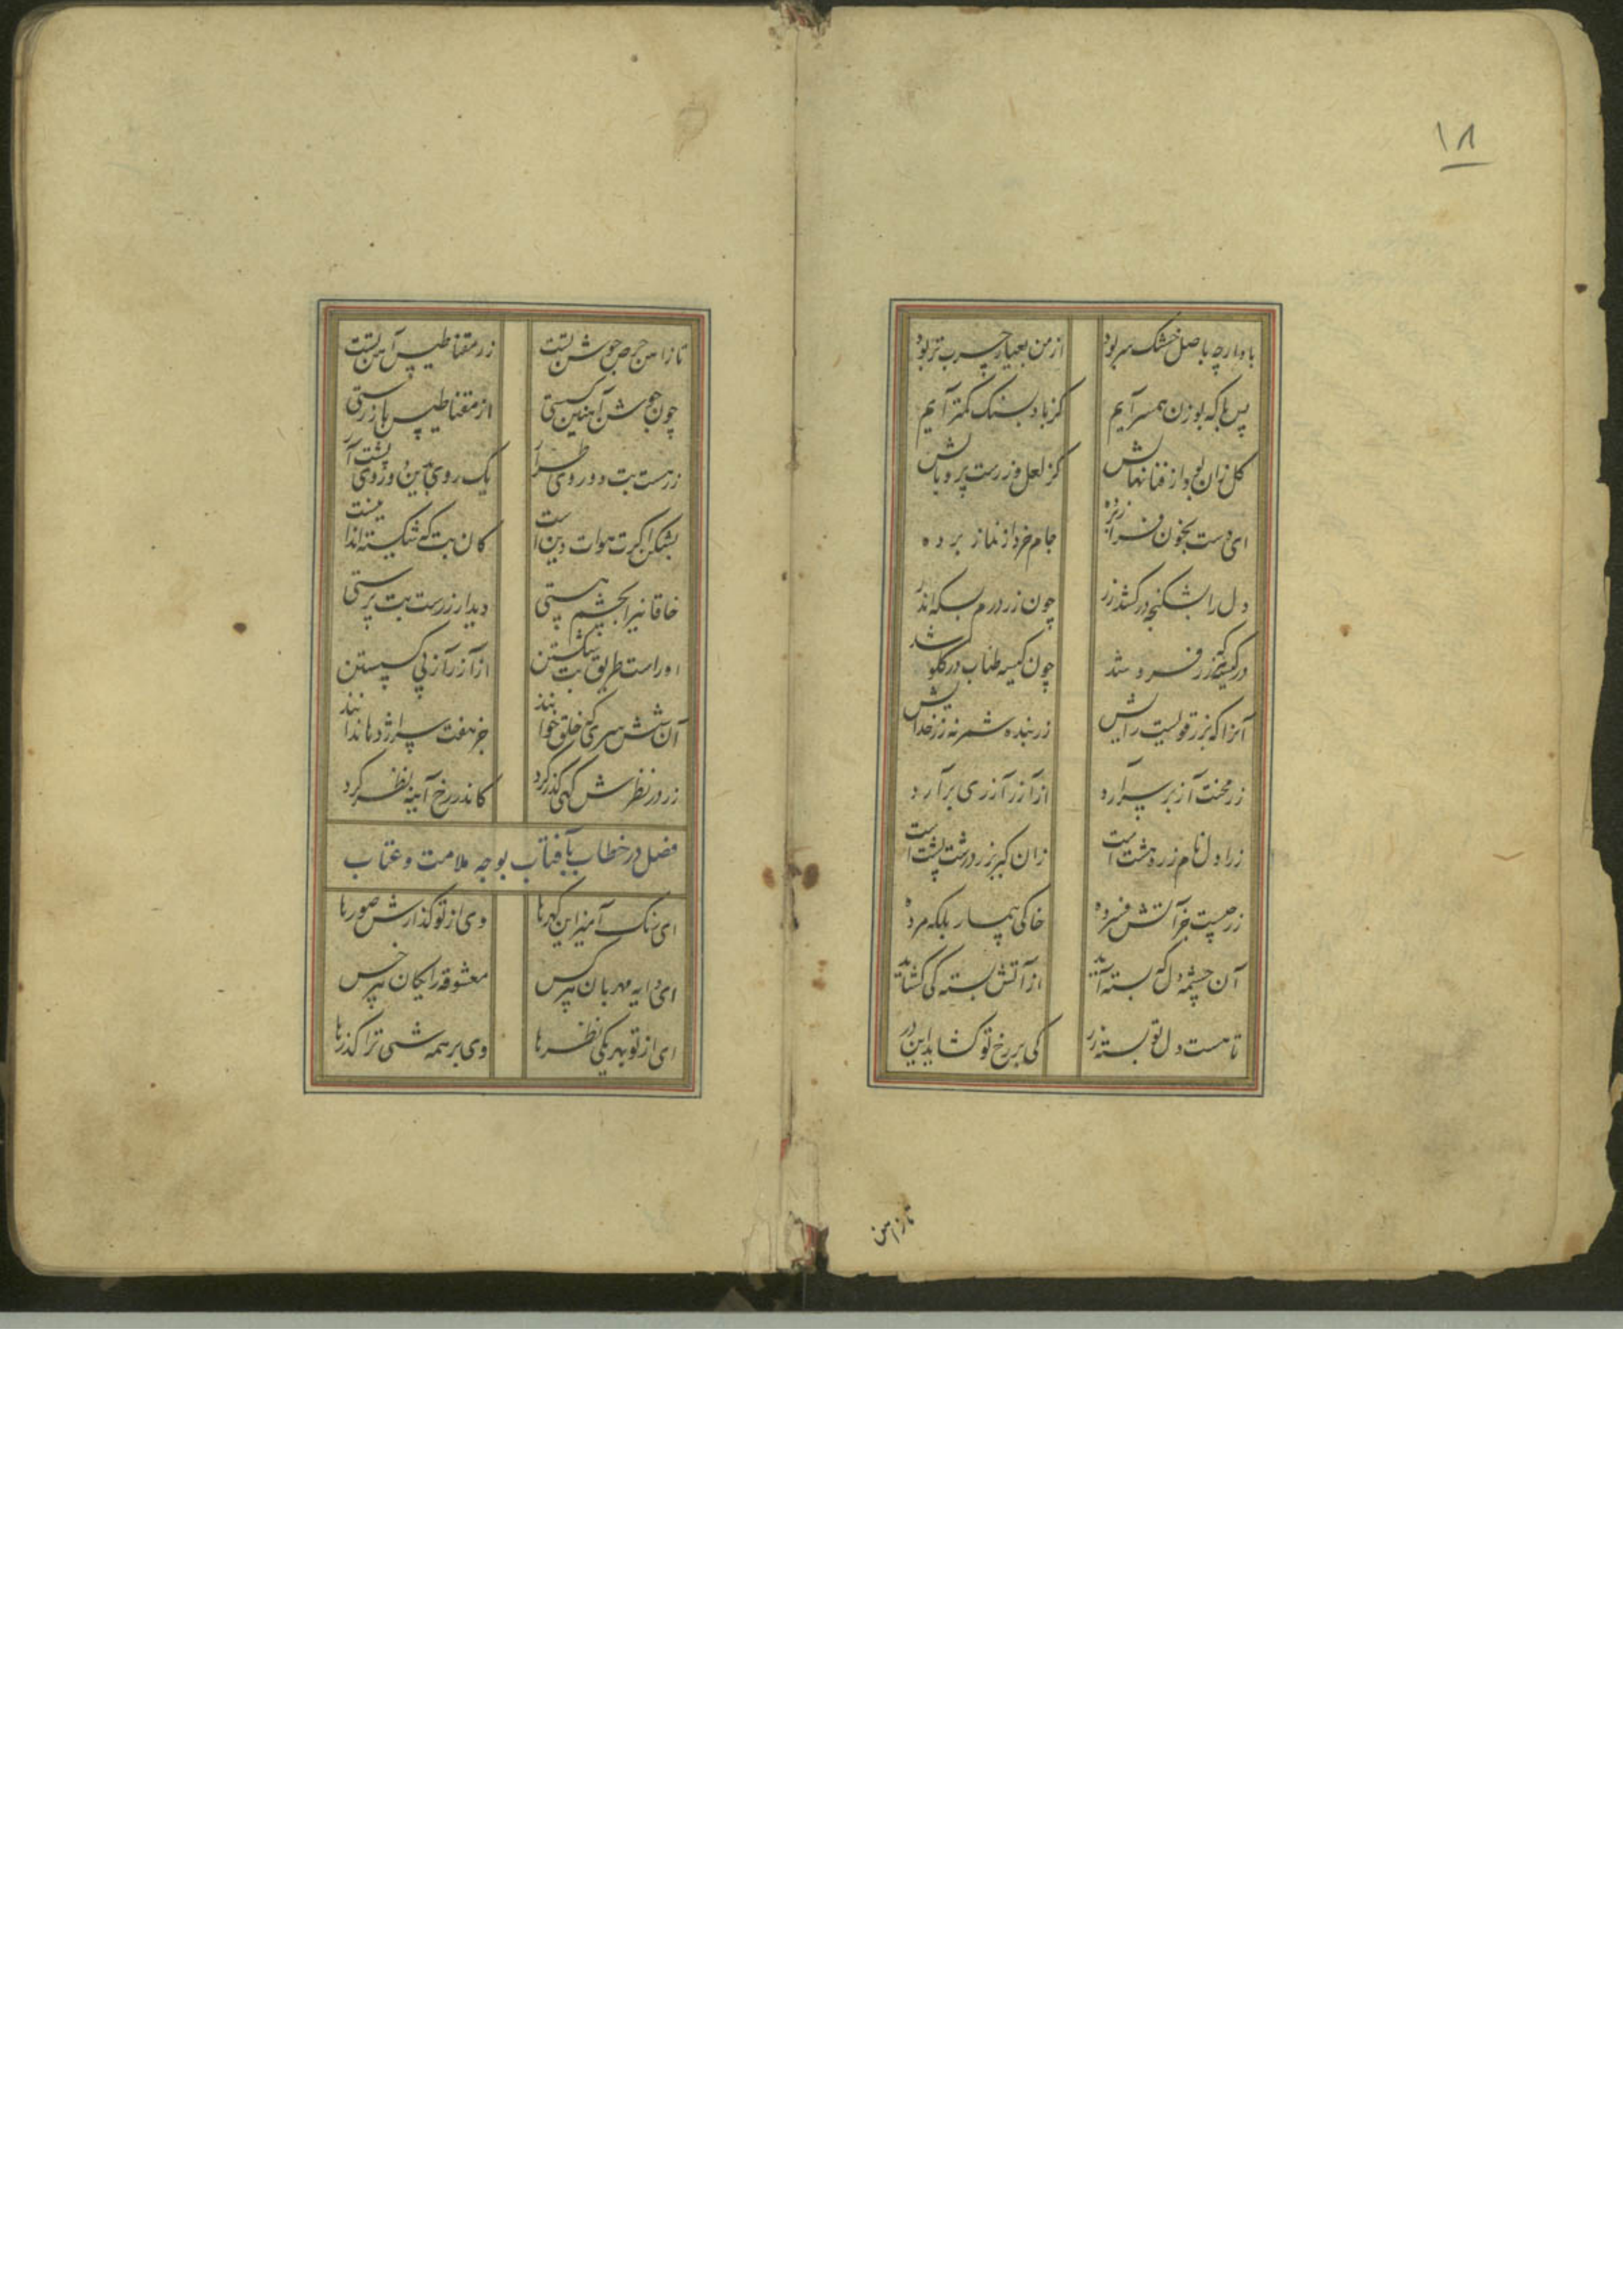 ۱۸
باد ارچه باصل خشک سر بود از من بعیار چرب تر بود
پس با که بوزن همسر آیم کز باد بسنک کمتر آیم
کل زان بود از فنا نهانش کز لعل و زرست پر دهانش
ای دست بخون فرا زرده جام خرد از نماز برده
دل را بشکنجه در کشد زر چون زر درم بسکه اندر
در کیسه زر فرو شد چون کیسه طناب در کلو شد
آنرا که بزر قویست رایش زر بنده شمر نه زر خدایش
زر محنت آز بر سر آرد از آزر آزری برآرد
زر اول نام زردهشت است زان کبر زر درشت پشت است
زر چیست جز آتش فسرده خاکی بیمار بلکه مرده
آن چشمه دل که بسته آید از آتش بسته کی کشاید
تا هست دل تو بسته زر کی بر رخ تو کشاید این در
تا ز آهن
تا ز آهن حرص جوشن تست زر مقناطیس آهن تست
چون جوشن آهنین کسستی از مقناطیس باز رستی
زر هست بت دو روی طرار یک روی بین و روی پشت آر
بشکن اکرت هوات دین است کان بت که شکسته اند اینست
خاقانیرا بچشم هستی دیدار زرست بت پرستی
او راست طریق بت شکستن از آزر آز پی کسستن
آن شش سری کش خلق خوانند جز هفت سر اژدها ندانند
زر در نظرش کهی کذر کرد کاندر رخ آینه نظر کرد
فصل در خطاب بآفتاب بوجه ملامت و عتاب
ای رنک آمیز این کهرها وی از تو کذارش صورها
ای دایه مهربان هر کس معشوقه رایکان هر خس
ای از تو بهر یکی نظرها وی بر همه شیی ترا کذرها